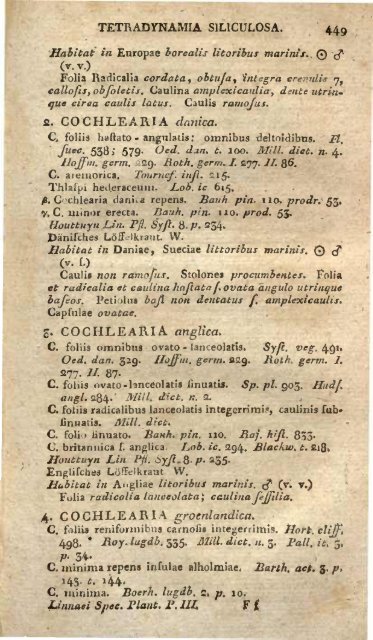 TETRADYNAMIA SILICULOSA. 449
Habitat in Europae borealis litoribus marinis. ⊙ ♂
(v. v.)
Folia Radicalia cordata, obtuſa, integra crenulis 7,
calloſis, obſoletis. Caulina amplexicaulia, dente utrin-
que circa caulis latus. Caulis ramoſus.
2. COCHLEARIA danica.
C. foliis haſtato - angulatis: omnibus deltoidibus. Fl.
ſuec. 538; 579. Oed. dan. t. 100. Mill. dict. n. 4.
Hoffm. germ. 229. Roth. germ. I. 277. II. 86.
C. aremorica. Tournef. inſt. 215.
Thlaſpi hederaceum. Lob. ic 615.
β. Cochlearia danica repens. Bauh pin. 110. prodr. 53.
γ. C. minor erecta. Bauh. pin. 110. prod. 53.
Houttuyn Lin. Pfl. Syſt. 8. p. 234.
Däniſches Löffelkraut. W.
Habitat in Daniae, Sueciae littoribus marinis. ⊙ ♂
(v. ſ.)
Caulis non ramoſus. Stolones procumbentes. Folia
et radicalia et caulina haſtata ſ. ovata angulo utrinque
baſeos. Petiolus baſi non dentatus ſ. amplexicaulis.
Capſulae ovatae.
3. COCHLEARIA anglica.
C. foliis omnibus ovato - lanceolatis. Syſt. veg. 491.
Oed. dan. 329. Hoffm. germ. 229. Roth. germ. I.
277. II. 87.
C. foliis ovato-lanceolatis ſinuatis. Sp. pl. 903. Hudſ.
angl. 284. Mill. dict. n. 2.
C. foliis radicalibus lanceolatis integerrimis, caulinis ſub-
ſinuatis. Mill. dict.
C. folio ſinuato. Bauh. pin. 110. Raj. hiſt. 833.
C. britannica ſ. anglica. Lob. ic. 294. Blackw. t. 218.
Houttuyn Lin. Pfl. Syſt. 8. p. 235.
Engliſches Löffelkraut W.
Habitat in Angliae litoribus marinis. ♂ (v. v.)
Folia radicalia lanceolata; caulina ſeſſilia.
4. COCHLEARIA groenlandica.
C. foliis reniformibus carnoſis integerrimis. Hort. cliff.
498. * Roy. lugdb. 335. Mill. dict. n. 3. Pall. it. 3.
p. 34.
C. minima repens inſulae alholmiae. Barth. act. 3. p.
143. t. 144.
C. minima. Boerh. lugdb. 2. p. 10.
Linnaei Spec. Plant. P. III. F f